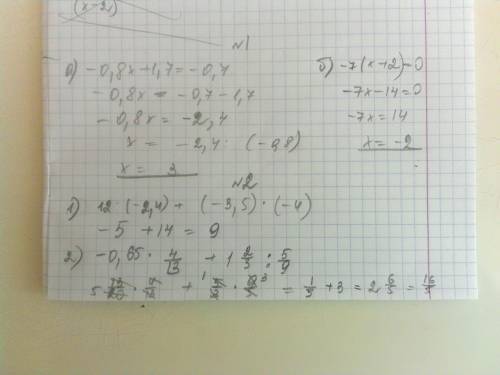 (x-2)
№1
а) -0,8x+1,7=-0,7
-0,8x = -0,7-1,7
-0,8x = -2,4
x = -2,4 : (-0,8)
x = 3
б) -7(x+2)=0
-7x-14=0
-7x=14
x = -2
№2
1) 12 (-2,4) + (-3,5)·(-4)
-5 +14 = 9
2) -0,65 · 4/13 + 1 2/3 : 5/9
= 1/5 + 3 = 2 6/5 = 16/5